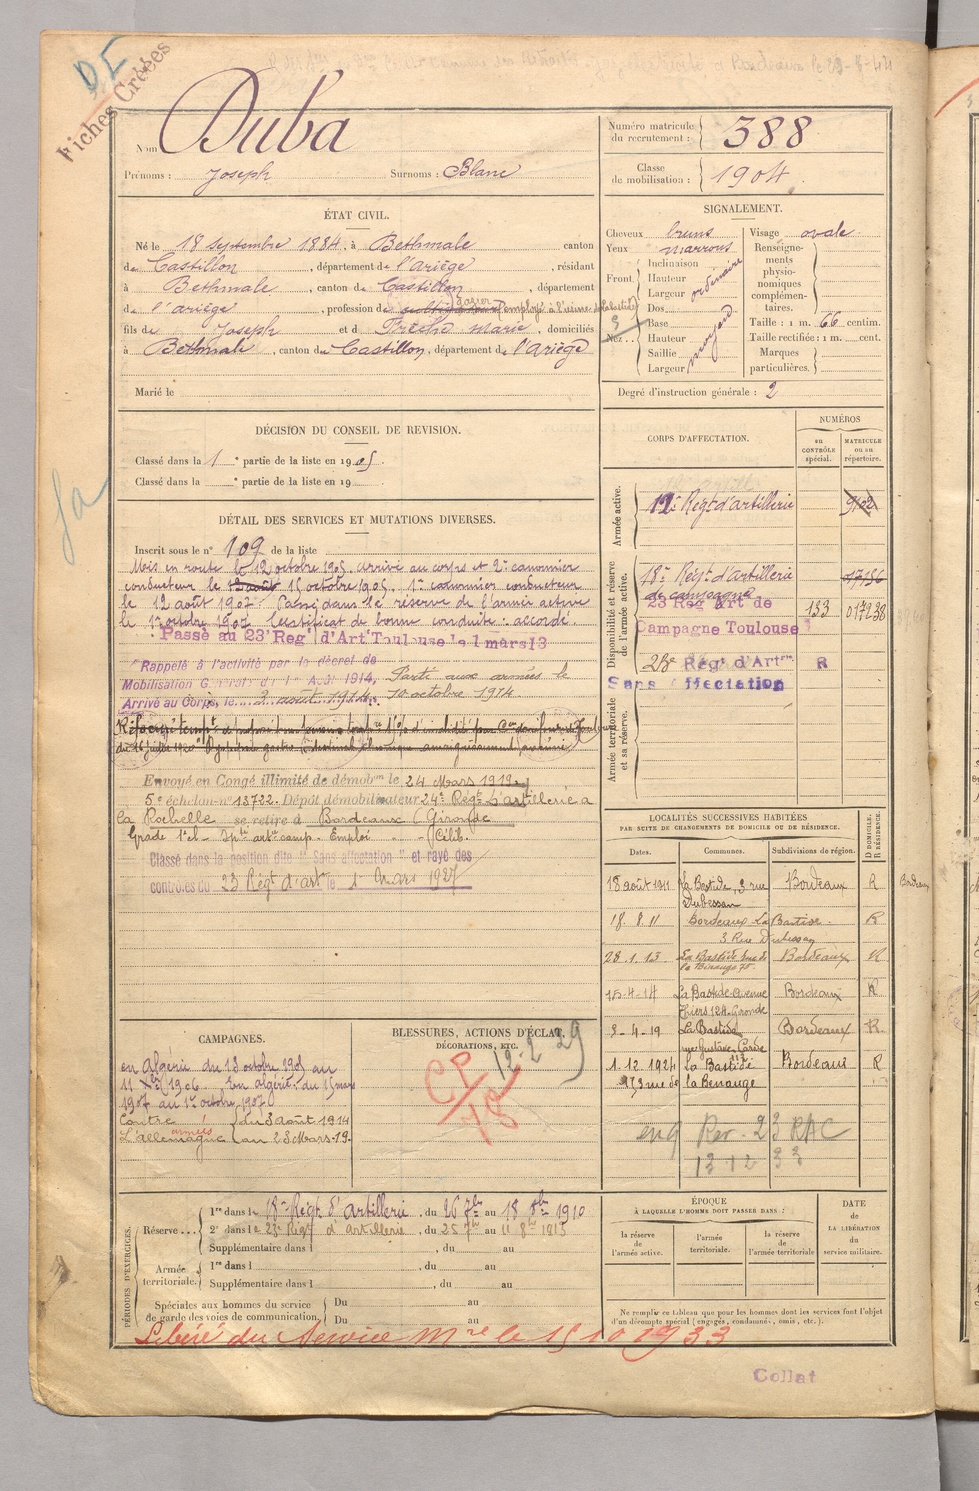 Fiches Créées
Nom Duba
Prénoms : Joseph Surnoms : Blanc
Numéro matricule du recrutement : 388
Classe de mobilisation : 1904.
ÉTAT CIVIL.
Né le 18 septembre 1884, à Bethmale canton
de Castillon, département de l'Ariège, résidant
à Bethmale, canton de Castillon, département
de l'ariège, profession de cultivateur employé à l'usine
fils de Joseph et de Marie, domiciliés
à Bethmale, canton du Castillon, département de l'Ariège
Marié le
SIGNALEMENT.
Cheveux bruns
Yeux marrons
Front. Inclinaison
Hauteur
Largeur ordinaire
Nez. Dos
Base
Hauteur
Saillie
Largeur moyend
Visage ovale
Renseignements physionomiques complémentaires.
Taille : 1 m. 66 centim.
Taille rectifiée : 1 m. cent.
Marques particulières.
Degré d'instruction générale : 2
DÉCISION DU CONSEIL DE REVISION.
Classé dans la 1e partie de la liste en 1905.
Classé dans la e partie de la liste en 19
DÉTAIL DES SERVICES ET MUTATIONS DIVERSES.
Inscrit sous le n° 109 de la liste
Mis en route le 12 octobre 1905. arrivé au corps et 2e canonnier
conducteur le 13 août 15 octobre 1905. 1er canonnier conducteur
le 12 août 1907. Passé dans la réserve de l'armée active
le 1er octobre 1907. Certificat de bonne conduite : accordé.
Passé au 23e Regt d'Art Toulouse le 1 mars 13
Rappelé à l'activité par le décret de
Mobilisation Générale du 1er Août 1914,
Arrivé au Corps, le 2 août 1914. Parti aux armées le
10 octobre 1914.
Envoyé en Congé illimité de démobm le 24 Mars 1919
5e échelon n° 13722. Dépôt démobilisateur 24e Regt d'artillerie à
la Rochelle se retire à Bordeaux (Gironde
Classé dans la position dite " Sans affectation " et rayé des
contrôles du 23 Régt d'art le 1er Mars 1927
CORPS D'AFFECTATION.
NUMÉROS
au CONTRÔLE spécial.
MATRICULE ou au répertoire.
Armée active.
12e Régt d'artillerie 9102
Disponibilité et réserve de l'armée active.
18e Régt d'artillerie 17456
de campagne
23 Reg Art de
Campagne Toulouse 133 017238
23e Régt d'Artrie R
Sans affectation
Armée territoriale et sa réserve.
LOCALITÉS SUCCESSIVES HABITÉES
PAR SUITE DE CHANGEMENTS DE DOMICILE OU DE RÉSIDENCE.
Dates. Communes. Subdivisions de région. D DOMICILE. R RÉSIDENCE.
18 août 1911 la Bastide, 3 rue Dubessan Bordeaux R
18. 8. 11 Bordeaux La Bastide. R
3 Rue Dubessan
28. 1. 13 La Bastide rue de la Benauge 75 Bordeaux R
15-4-14 La Bastide Avenue Thiers 124 Gironde Bordeaux R
3-4-19 La Bastide rue Gustave Carde Bordeaux R
1.12.1924 La Bastide Bordeaux R
173 rue de la Benauge
Rer. 23 RAC
13 12 33
CAMPAGNES.
en Algérie du 13 octobre 1905 au
11 Xbre 1906. En algérie du 15 mars
1907 au 1er octobre 1907.
Contre du 3 août 1914
L'allemagne au 23 Mars-19.
BLESSURES, ACTIONS D'ÉCLAT,
DÉCORATIONS, ETC.
12-2 29
CP/78
PÉRIODES D'EXERCICES.
Réserve... 1re dans le 18e Régt d'Artillerie, du 26 7bre au 18 8bre 1910
2e dans le 23e Régt d'artillerie, du 25 7bre au 11 8bre 1913
Supplémentaire dans l , du au
Armée territoriale. 1re dans l , du au
Supplémentaire dans l , du au
Spéciales aux hommes du service de garde des voies de communication. Du au
Du au
Libéré du Service Mre le 15 10 1933
ÉPOQUE
À LAQUELLE L'HOMME DOIT PASSER DANS :
la réserve de l'armée active.
l'armée territoriale.
la réserve de l'armée territoriale
DATE DE LA LIBÉRATION du service militaire.
Ne remplir ce tableau que pour les hommes dont les services font l'objet
d'un décompte spécial (engagés, condamnés, omis, etc.).
Collat